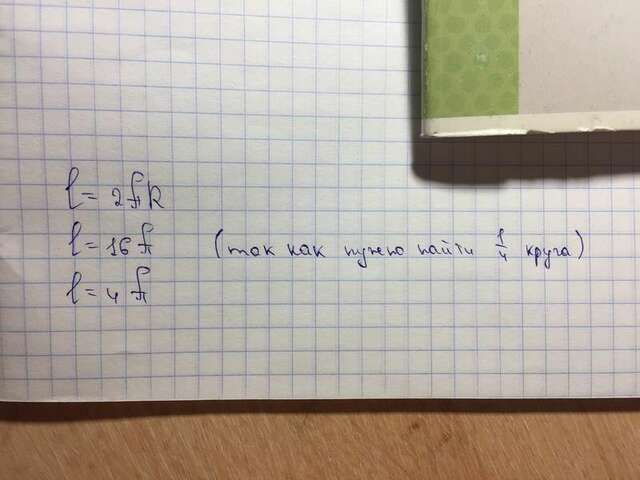 l = 2πR
l = 16π (так как нужно найти 1/4 круга)
l = 4π